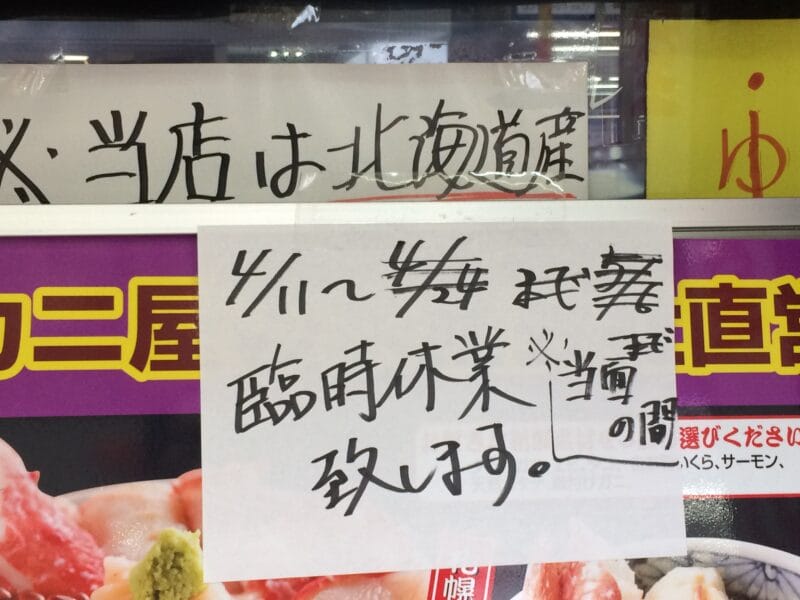 ※当店は北海道産
ゆ
カニ屋
直営
4/11〜4/24まで5/6
まで
臨時休業
※当面
の間
致します。
選びください
いくら、サーモン、
札幌